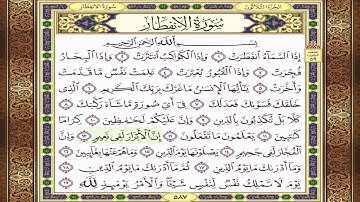 الجزء الثلاثون سورة الانفطار
سورة الانفطار
بسم الله الرحمن الرحيم
إذا السماء انفطرت ١ وإذا الكواكب انتثرت ٢ وإذا البحار
فجرت ٣ وإذا القبور بعثرت ٤ علمت نفس ما قدمت
وأخرت ٥ يأيها الإنسان ما غرك بربك الكريم ٦ الذي
خلقك فسوىك فعدلك ٧ في أي صورة ما شاء ركبك
٨ كلا بل تكذبون بالدين ٩ وإن عليكم لحفظين ١٠ كراما
كتبين ١١ يعلمون ما تفعلون ١٢ إن الأبرار لفي نعيم ١٣ وإن
الفجار لفي جحيم ١٤ يصلونها يوم الدين ١٥ وما هم عنها بغائبين ١٦
وما أدرىك ما يوم الدين ١٧ ثم ما أدرىك ما يوم الدين ١٨
يوم لا تملك نفس لنفس شيئا والأمر يومئذ لله ١٩
٥٨٧